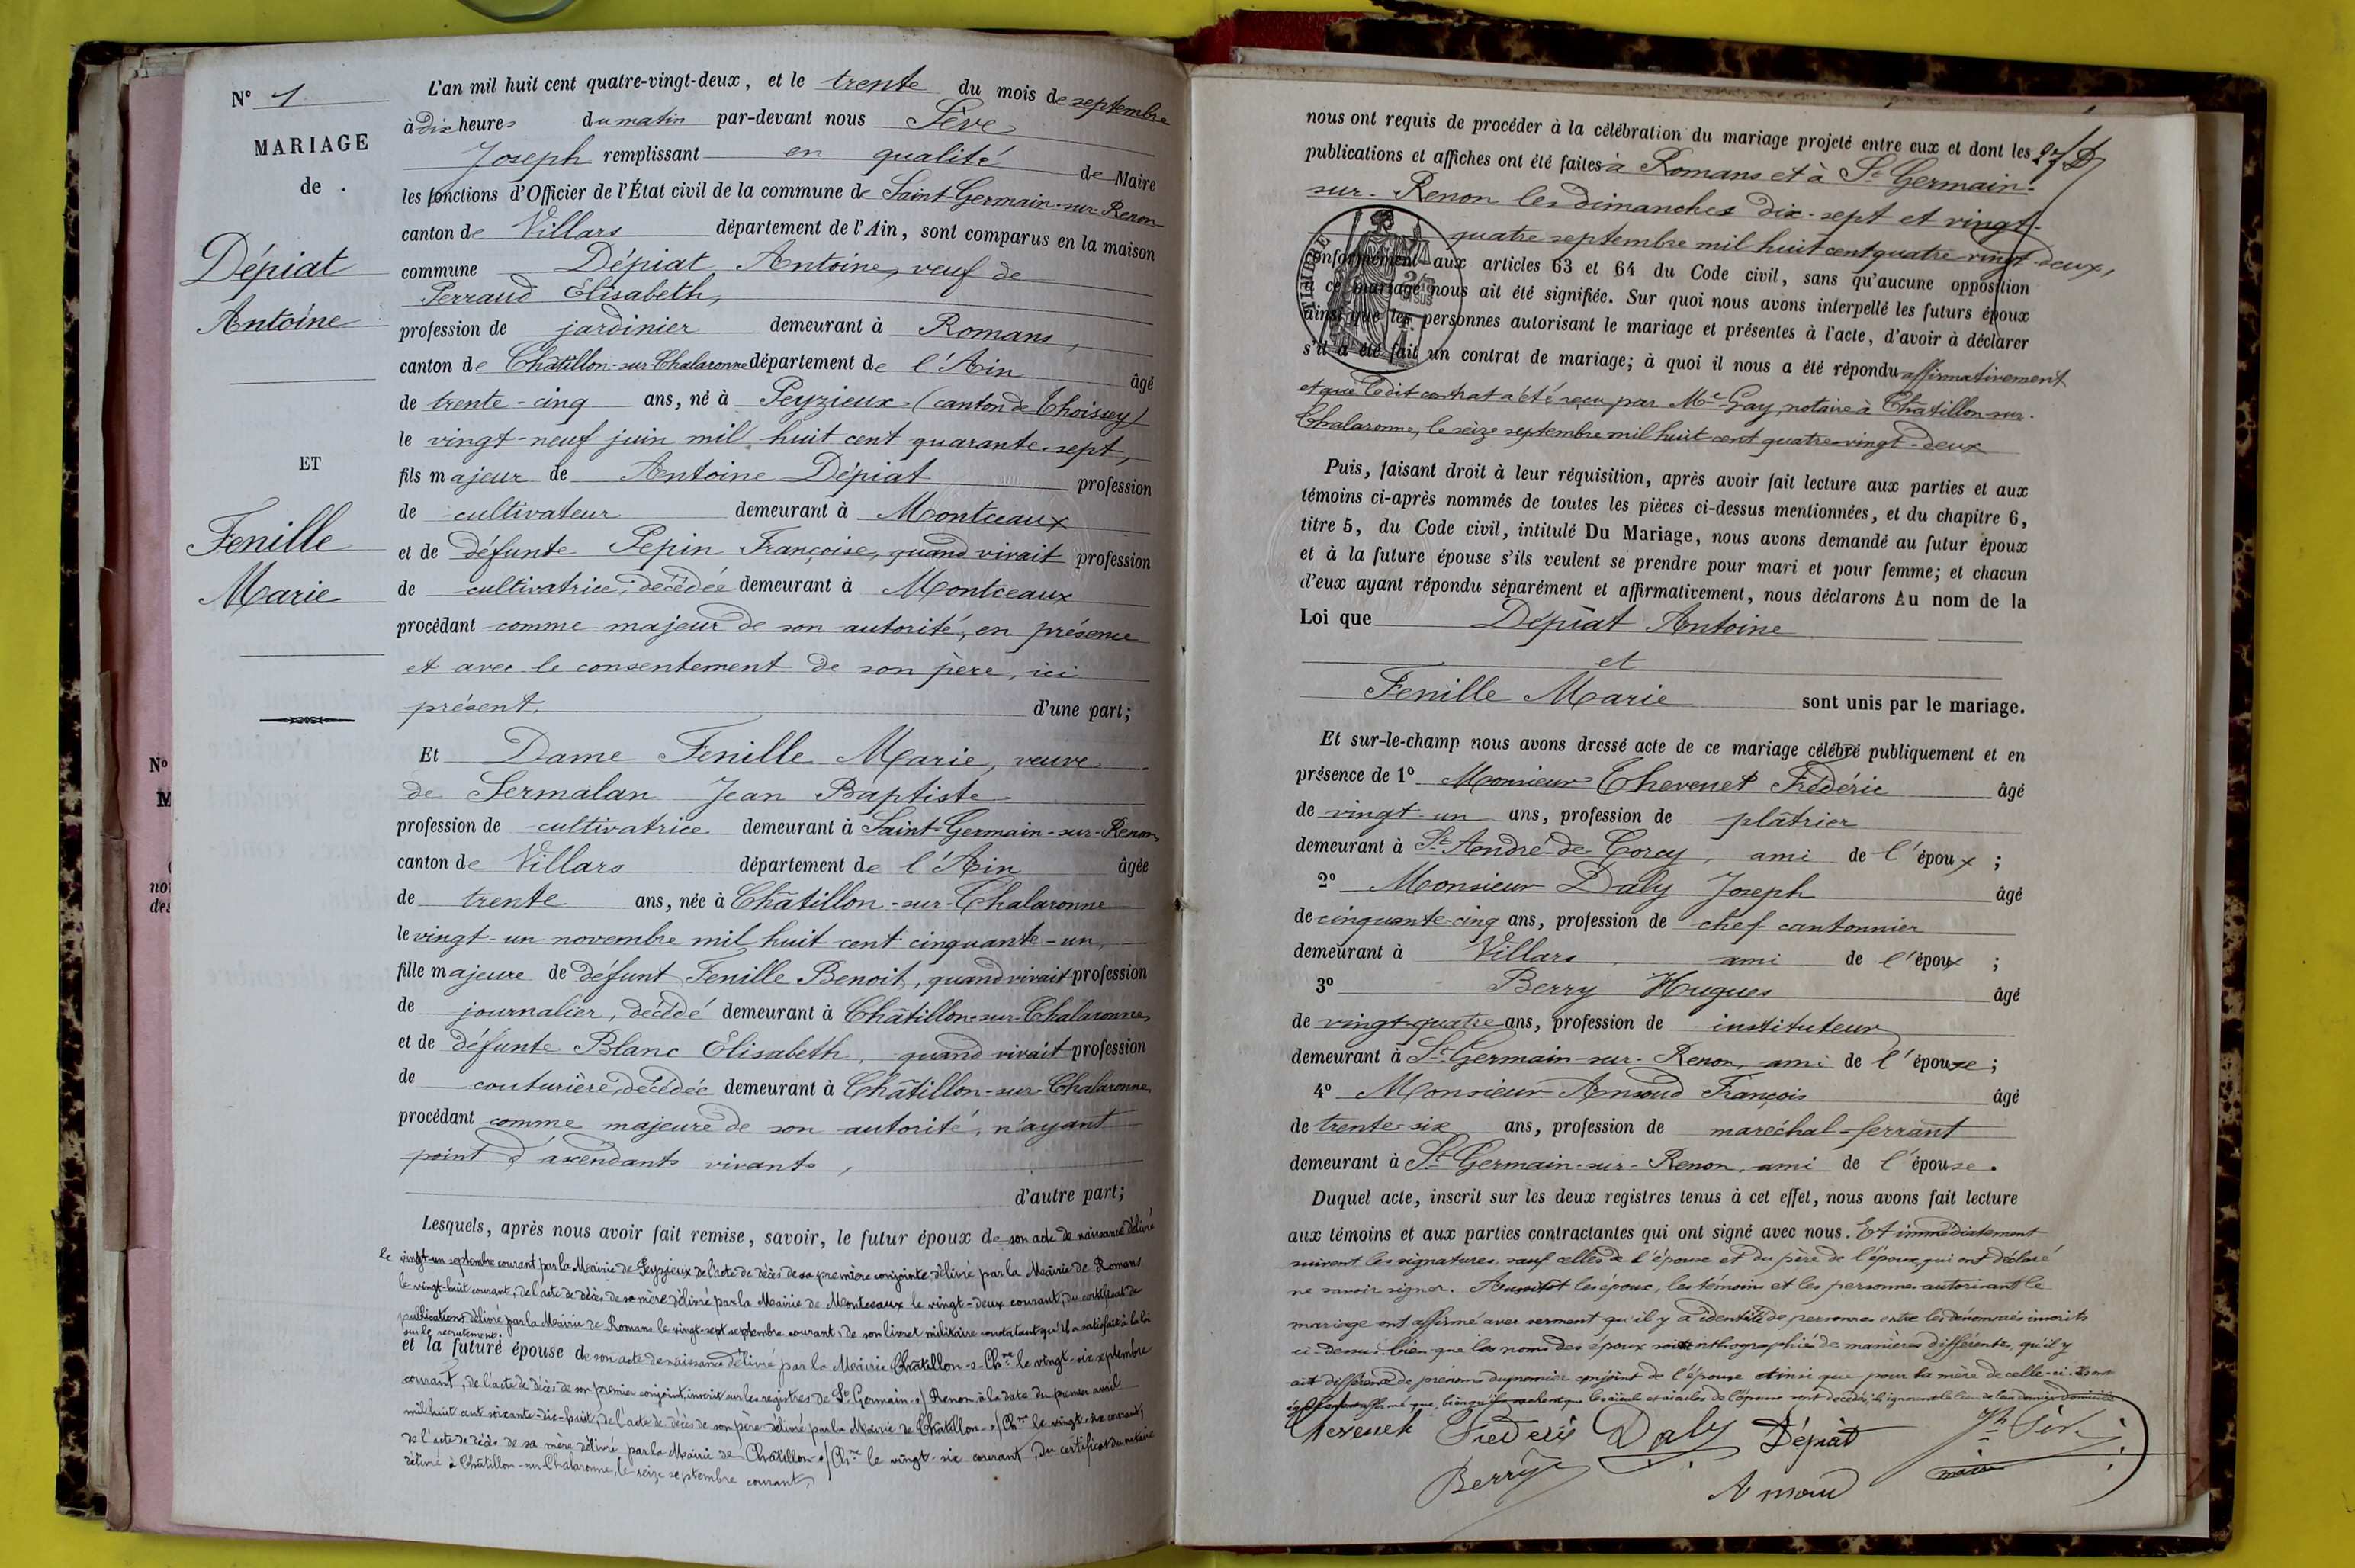 N° 1
MARIAGE
de
Dépiat
Antoine
ET
Fenille
Marie
N°
M
L'an mil huit cent quatre-vingt-deux, et le trente du mois de septembre
à dix heures du matin par-devant nous Sève
Joseph remplissant en qualité de Maire
les fonctions d'Officier de l'État civil de la commune de Saint-Germain-sur-Renon
canton de Villars département de l'Ain, sont comparus en la maison
commune Dépiat Antoine, veuf de
Perraud Elisabeth,
profession de jardinier demeurant à Romans,
canton de Châtillon-sur-Chalaronne département de l'Ain âgé
de trente-cinq ans, né à Peyzieux (canton de Thoissey)
le vingt-neuf juin mil huit cent quarante-sept,
fils majeur de Antoine Dépiat profession
de cultivateur demeurant à Montceaux
et de défunte Pepin Françoise, quand vivait profession
de cultivatrice, décédée demeurant à Montceaux
procédant comme majeur de son autorité, en présence
et avec le consentement de son père, ici
présent. d'une part;
Et Dame Fenille Marie, veuve
de Sermalan Jean Baptiste
profession de cultivatrice demeurant à Saint-Germain-sur-Renon,
canton de Villars département de l'Ain âgée
de trente ans, née à Châtillon-sur-Chalaronne
le vingt-un novembre mil huit cent cinquante-un,
fille majeure de défunt Fenille Benoit, quand vivait profession
de journalier, décédé demeurant à Châtillon-sur-Chalaronne,
et de défunte Blanc Elisabeth, quand vivait profession
de couturière, décédée demeurant à Châtillon-sur-Chalaronne,
procédant comme majeure de son autorité, n'ayant
point d'ascendants vivants,
d'autre part;
Lesquels, après nous avoir fait remise, savoir, le futur époux de son acte de naissance délivré
le vingt-un septembre courant par la Mairie de Peyzieux de l'acte de décès de sa première conjointe, délivré par la Mairie de Romans
le vingt-huit courant, de l'acte de décès de sa mère délivré par la Mairie de Montceaux le vingt-deux courant, du certificat de
publications délivré par la Mairie de Romans le vingt-sept septembre courant, de son livret militaire constatant qu'il a satisfait à la loi
sur le recrutement.
et la future épouse de son acte de naissance délivré par la Mairie Châtillon-s-Ch.ne le vingt-six septembre
courant, de l'acte de décès de son premier conjoint inscrit sur les registres de St Germain-s/Renon à la date du premier avril
mil huit cent soixante-dix-huit, de l'acte de décès de son père délivré par la Mairie de Châtillon-s/Ch.ne le vingt-six courant,
de l'acte de décès de sa mère délivré par la Mairie de Châtillon-s/Ch.ne le vingt-six courant, du certificat du notaire
délivré à Châtillon-sur-Chalaronne, le seize septembre courant,
nous ont requis de procéder à la célébration du mariage projeté entre eux et dont les
publications et affiches ont été faites à Romans et à St Germain-
sur-Renon les dimanches dix-sept et vingt-
quatre septembre mil huit cent quatre-vingt-deux,
TIMBRE
conformément aux articles 63 et 64 du Code civil, sans qu'aucune opposition
à ce mariage nous ait été signifiée. Sur quoi nous avons interpellé les futurs époux
ainsi que les personnes autorisant le mariage et présentes à l'acte, d'avoir à déclarer
s'il a été fait un contrat de mariage; à quoi il nous a été répondu affirmativement
et que ledit contrat a été reçu par Me Gay, notaire à Châtillon-sur-
Chalaronne, le seize septembre mil huit cent quatre-vingt-deux
Puis, faisant droit à leur réquisition, après avoir fait lecture aux parties et aux
témoins ci-après nommés de toutes les pièces ci-dessus mentionnées, et du chapitre 6,
titre 5, du Code civil, intitulé Du Mariage, nous avons demandé au futur époux
et à la future épouse s'ils veulent se prendre pour mari et pour femme; et chacun
d'eux ayant répondu séparément et affirmativement, nous déclarons Au nom de la
Loi que Dépiat Antoine
et
Fenille Marie sont unis par le mariage.
Et sur-le-champ nous avons dressé acte de ce mariage célébré publiquement et en
présence de 1° Monsieur Thevenet Frédéric âgé
de vingt-un ans, profession de plâtrier
demeurant à St André de Corcy, ami de l'époux ;
2° Monsieur Daly Joseph âgé
de cinquante-cinq ans, profession de chef cantonnier
demeurant à Villars, ami de l'époux ;
3° Berry Hugues âgé
de vingt-quatre ans, profession de instituteur
demeurant à St Germain-sur-Renon, ami de l'épouse ;
4° Monsieur Arnoud François âgé
de trente-six ans, profession de maréchal-ferrant
demeurant à St Germain-sur-Renon, ami de l'épouse.
Duquel acte, inscrit sur les deux registres tenus à cet effet, nous avons fait lecture
aux témoins et aux parties contractantes qui ont signé avec nous. Et immédiatement
suivent les signatures, sauf celles de l'épouse et du père de l'époux, qui ont déclaré
ne savoir signer. Aussitôt les époux, les témoins et les personnes autorisant le
mariage ont affirmé avec serment qu'il y a identité de personnes entre les dénommés inscrits
ci-dessus, bien que les noms des époux soient orthographiés de manières différentes, qu'il y
ait différence de prénoms du premier conjoint de l'épouse ainsi que pour la mère de celle-ci. Ils ont
également affirmé que, bien qu'ils sachent que les aïeuls et aïeules de l'épouse sont décédés, ils ignorent le lieu de leur dernier domicile
Thevenet Frédéric Daly Dépiat Jh Sève
Berry Arnoud maire